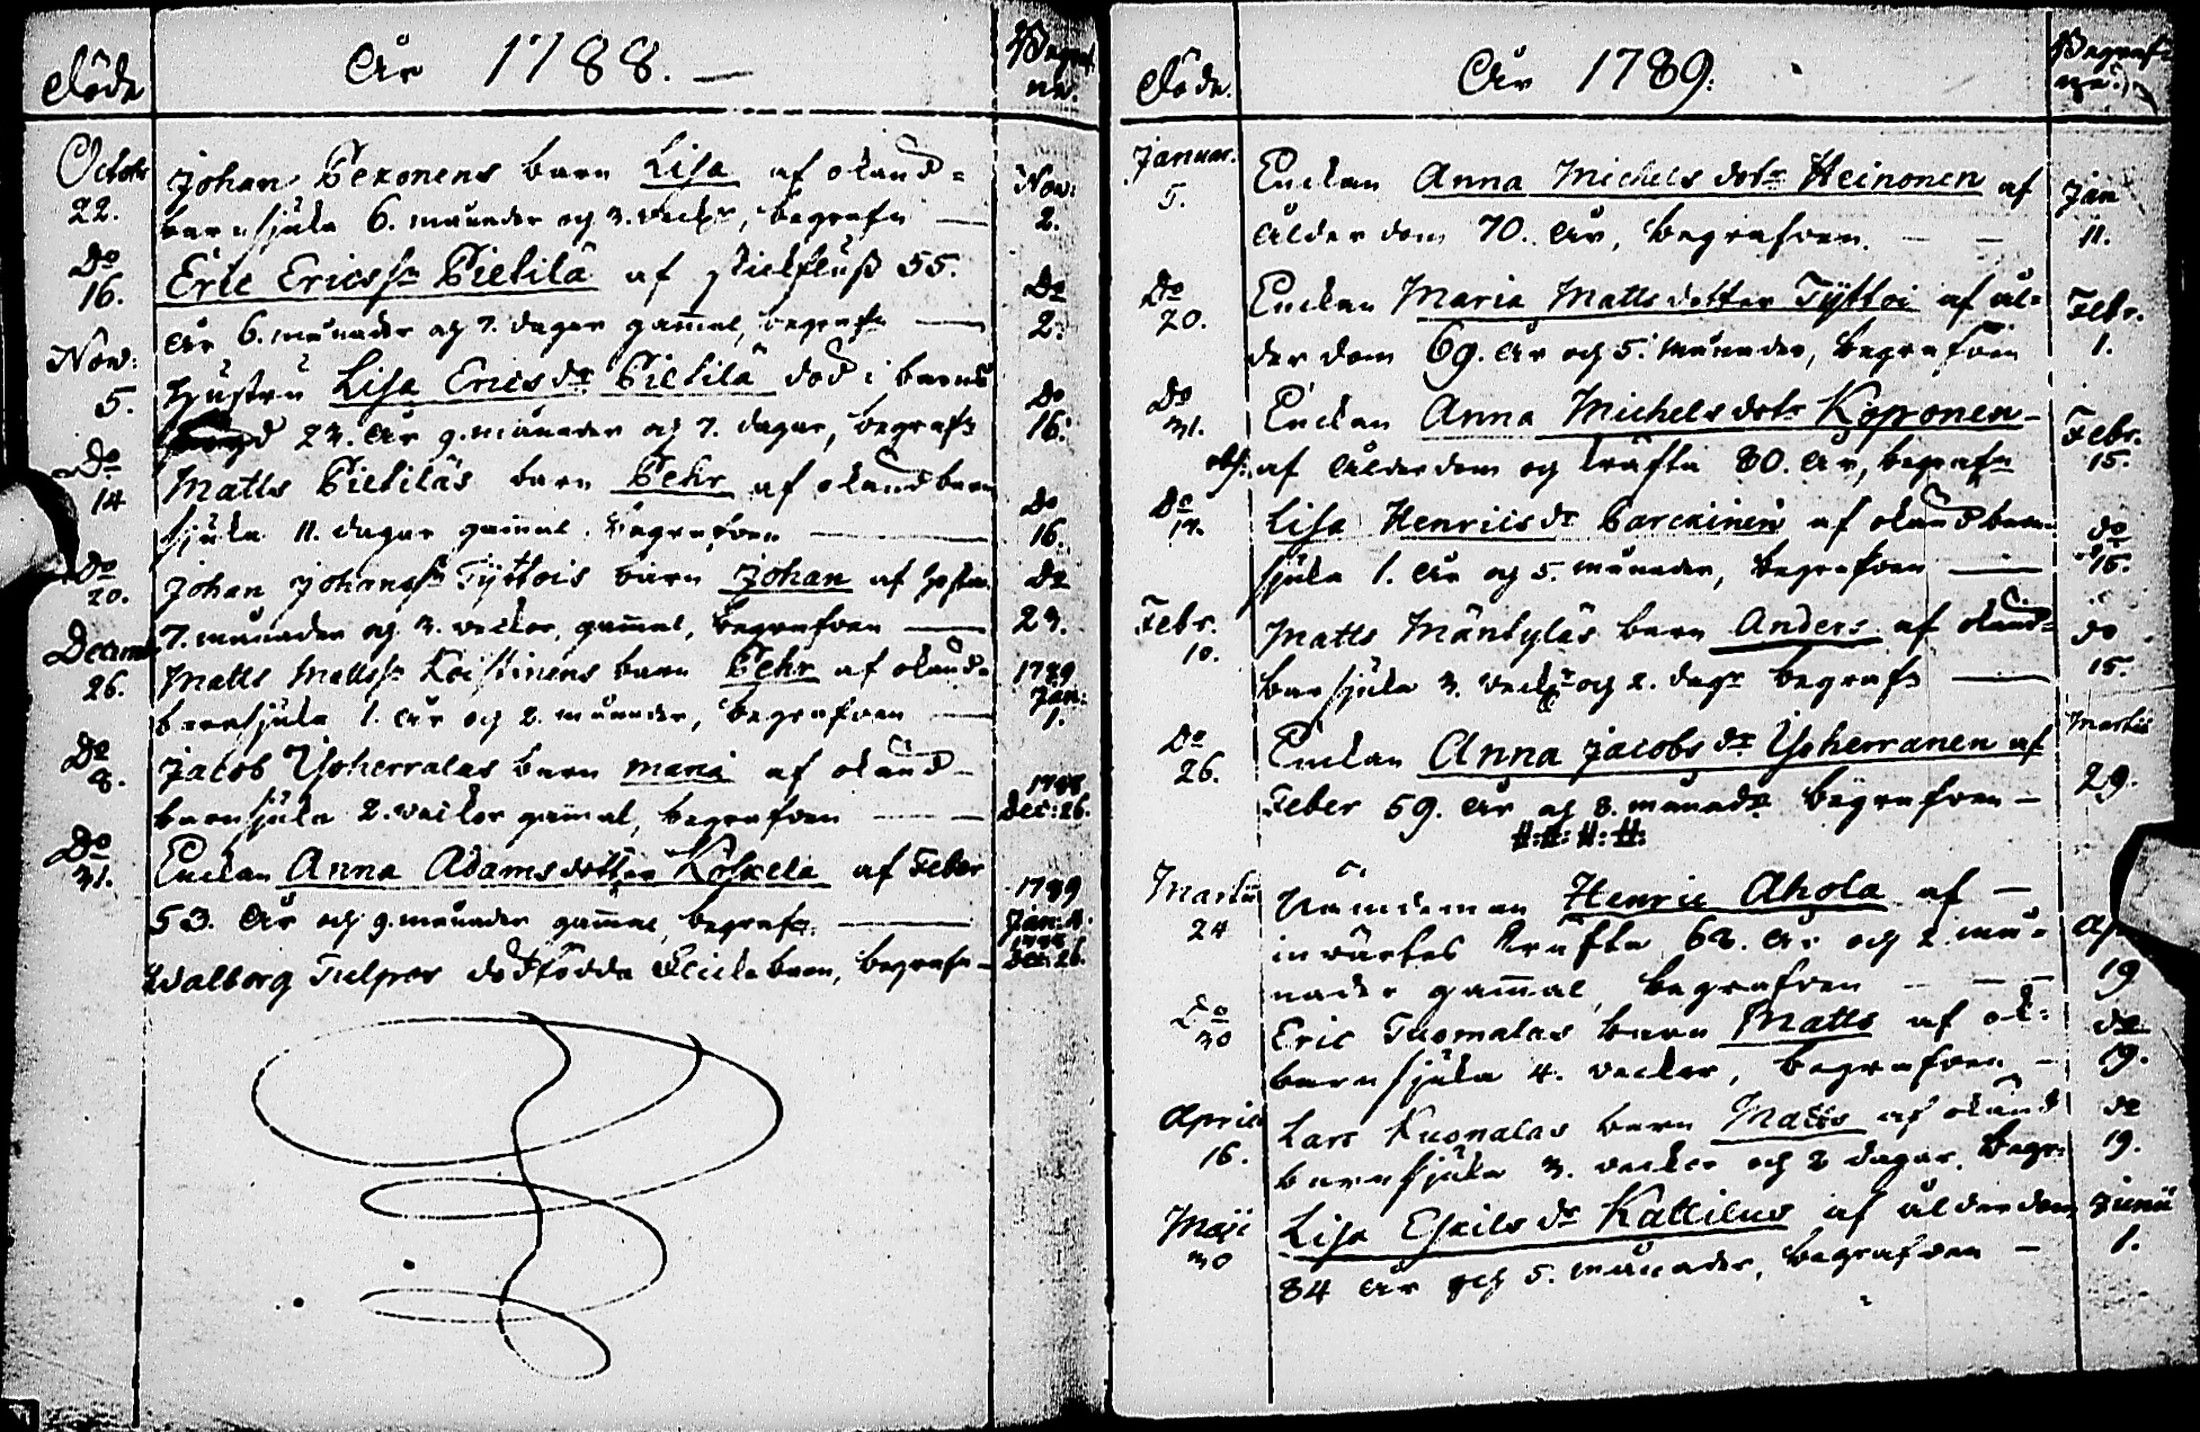 Döde
År 1788.
Begraf
ne.
Octobr
22.
Johan Pekonens barn Lisa af okänd-
barnsjuka 6. månader och 3. veckr, begrafn
Nov:
2.
Do
16.
Eric Ericsson Pietilä af stickfluß 55.
år 6. månader och 7. dagar gammal, begrafn
Do
2.
Nov:
5.
Hustru Lisa Ericsdr Pietilä död i barns
23. år 9. månader och 7. dagar, begrafn
Do
16.
Do
14
Matts Pietiläs barn Pehr af okänd barn
sjuka 11. dagar gammal. begrafven
Do
16.
Do
20.
Johan Johansson Tyttois barn Johan af hosta
7. månader och 3. veckor, gammal, begrafven
Do
23.
Decemb
26.
Matts Mattsson Koistinens barn Pehr af okänd-
barnsjuka 1. år och 2. månader, begrafven
1789
Jan:
1.
Do
8.
Jacob Ypherralas barn Maria af okänd-
barnsjuka 2. veckor gammal, begrafven
1788
Dec: 26.
Do
31.
Enckan Anna Adamsdotter Koskela af Feber
53. år och 9. månader gammal, begrafn.
1789
Jan: 4.
Walborg Tulpos dödfödda Flickebarn, begrafn
1788
Dec: 26.
Döde.
År 1789.
Begraf-
ne.
Januar.
5.
Enckan Anna Michelsdotr Heinonen af
ålderdom 70. år, begrafven.
Jan
11.
Do
20.
Enckan Maria Mattsdotter Tyttoi af ål-
derdom 69. år och 5. månader, begrafven
Febr.
1.
Do
31.
Enckan Anna Michelsdotr Koponen
obs: af ålderdom och kräfta 80. år, begrafn
Febr.
15.
Do
17.
Lisa Henricsdr Parckinen af okänd barn
sjuka 1. år och 5. månader, begrafven
do
15.
Febr.
10.
Matts Mäntyläs barn Anders af okänd-
barnsjuka 3. veckr och 2. dagr begrafn
do
15.
Do
26.
Enckan Anna Jacobsdr Ypherranen af
Feber 59. år och 8. månadr begrafven
Martii
29.
#:#:#:#:
Martii
24
Nämdeman Henric Ahola af
invärtes kräfta 62. år och 2. må-
nader gammal, begrafven
Ap
19
Do
30
Eric Tuomalas barn Matts af ok:
barnsjuka 4. veckor, begrafven
do
19.
April
16.
Lars Kuonalas barn Matts af okänd
barnsjuka 3. veckor och 2 dagar, begr:
do
19.
Maji
30
Lisa Eskilsdr Kattilus af ålderdom
84 år och 5. månader, begrafven
Junii
1.